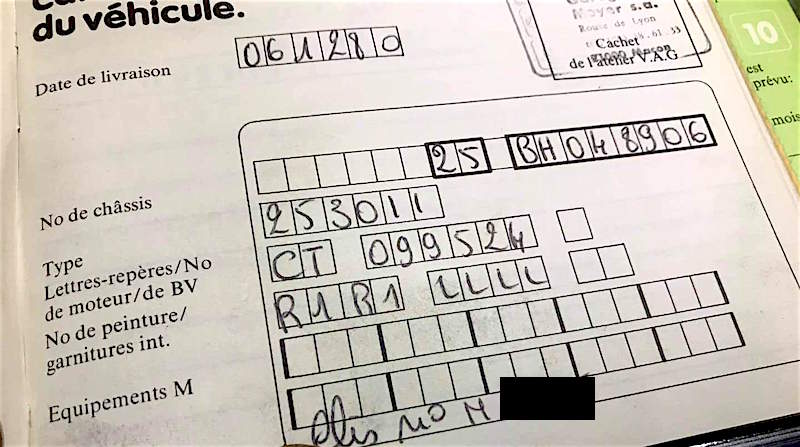 du véhicule.
Date de livraison 061280
Moyer s.a.
Route de Lyon
Cachet
de l'atelier V.A.G
10
est
prévu:
mois
No de châssis 25 BH048906
Type 253011
Lettres-repères/No
de moteur/de BV CT 099524
No de peinture/
garnitures int. R1R1 LLLL
Equipements M